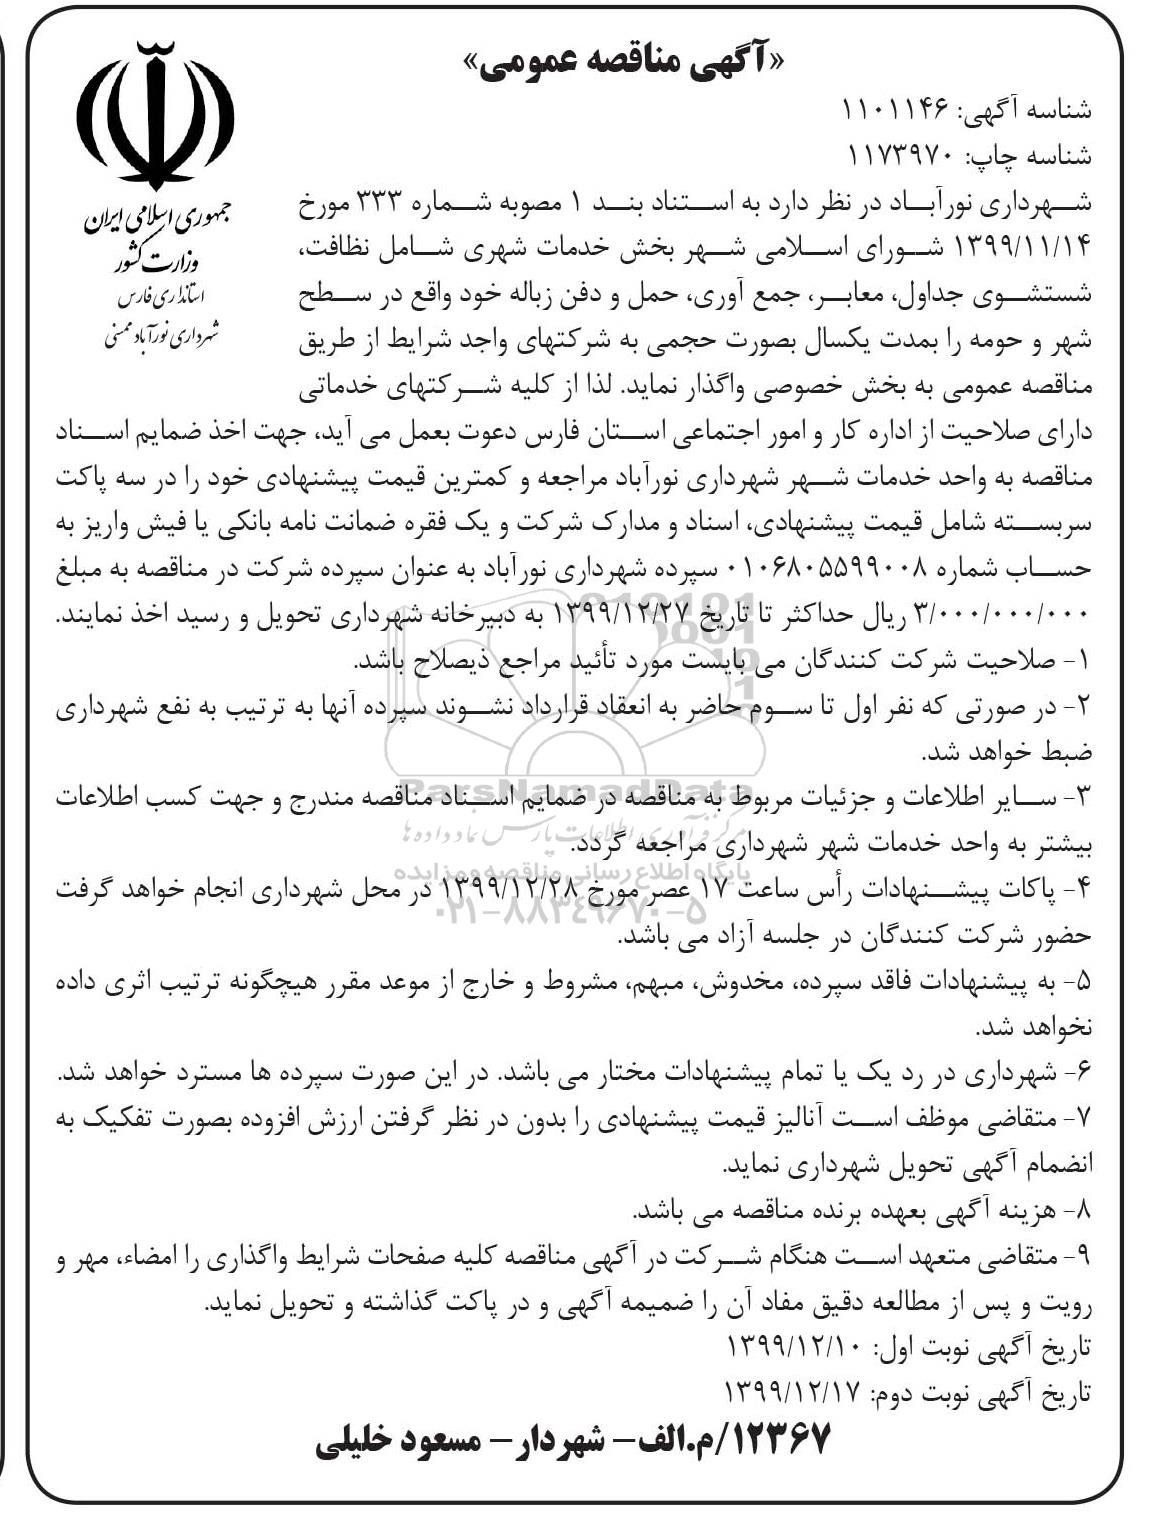 «آگهی مناقصه عمومی»
شناسه آگهی: ۱۱۰۱۱۴۶
شناسه چاپ: ۱۱۷۳۹۷۰
جمهوری اسلامی ایران
وزارت کشور
استانداری فارس
شهرداری نورآباد ممسنی
شهرداری نورآباد در نظر دارد به استناد بند ۱ مصوبه شماره ۳۳۳ مورخ
۱۳۹۹/۱۱/۱۴ شورای اسلامی شهر بخش خدمات شهری شامل نظافت،
شستشوی جداول، معابر، جمع آوری، حمل و دفن زباله خود واقع در سطح
شهر و حومه را بمدت یکسال بصورت حجمی به شرکتهای واجد شرایط از طریق
مناقصه عمومی به بخش خصوصی واگذار نماید. لذا از کلیه شرکتهای خدماتی
دارای صلاحیت از اداره کار و امور اجتماعی استان فارس دعوت بعمل می آید، جهت اخذ ضمایم اسناد
مناقصه به واحد خدمات شهر شهرداری نورآباد مراجعه و کمترین قیمت پیشنهادی خود را در سه پاکت
سربسته شامل قیمت پیشنهادی، اسناد و مدارک شرکت و یک فقره ضمانت نامه بانکی یا فیش واریز به
حساب شماره ۰۱۰۶۸۰۵۵۹۹۰۰۸ سپرده شهرداری نورآباد به عنوان سپرده شرکت در مناقصه به مبلغ
۳/۰۰۰/۰۰۰/۰۰۰ ریال حداکثر تا تاریخ ۱۳۹۹/۱۲/۲۷ به دبیرخانه شهرداری تحویل و رسید اخذ نمایند.
۱- صلاحیت شرکت کنندگان می بایست مورد تأئید مراجع ذیصلاح باشد.
۲- در صورتی که نفر اول تا سوم حاضر به انعقاد قرارداد نشوند سپرده آنها به ترتیب به نفع شهرداری
ضبط خواهد شد.
ParsNamadData
۳- سایر اطلاعات و جزئیات مربوط به مناقصه در ضمایم اسناد مناقصه مندرج و جهت کسب اطلاعات
مرکز فرآوری اطلاعات پارس نماد داده ها
بیشتر به واحد خدمات شهر شهرداری مراجعه گردد.
پایگاه اطلاع رسانی مناقصه و مزایده
۴- پاکات پیشنهادات رأس ساعت ۱۷ عصر مورخ ۱۳۹۹/۱۲/۲۸ در محل شهرداری انجام خواهد گرفت
۰۲۱-۸۸۳۴۹۶۷۰-۵
حضور شرکت کنندگان در جلسه آزاد می باشد.
۵- به پیشنهادات فاقد سپرده، مخدوش، مبهم، مشروط و خارج از موعد مقرر هیچگونه ترتیب اثری داده
نخواهد شد.
۶- شهرداری در رد یک یا تمام پیشنهادات مختار می باشد. در این صورت سپرده ها مسترد خواهد شد.
۷- متقاضی موظف است آنالیز قیمت پیشنهادی را بدون در نظر گرفتن ارزش افزوده بصورت تفکیک به
انضمام آگهی تحویل شهرداری نماید.
۸- هزینه آگهی بعهده برنده مناقصه می باشد.
۹- متقاضی متعهد است هنگام شرکت در آگهی مناقصه کلیه صفحات شرایط واگذاری را امضاء، مهر و
رویت و پس از مطالعه دقیق مفاد آن را ضمیمه آگهی و در پاکت گذاشته و تحویل نماید.
تاریخ آگهی نوبت اول: ۱۳۹۹/۱۲/۱۰
تاریخ آگهی نوبت دوم: ۱۳۹۹/۱۲/۱۷
۱۲۳۶۷/م.الف- شهردار- مسعود خلیلی